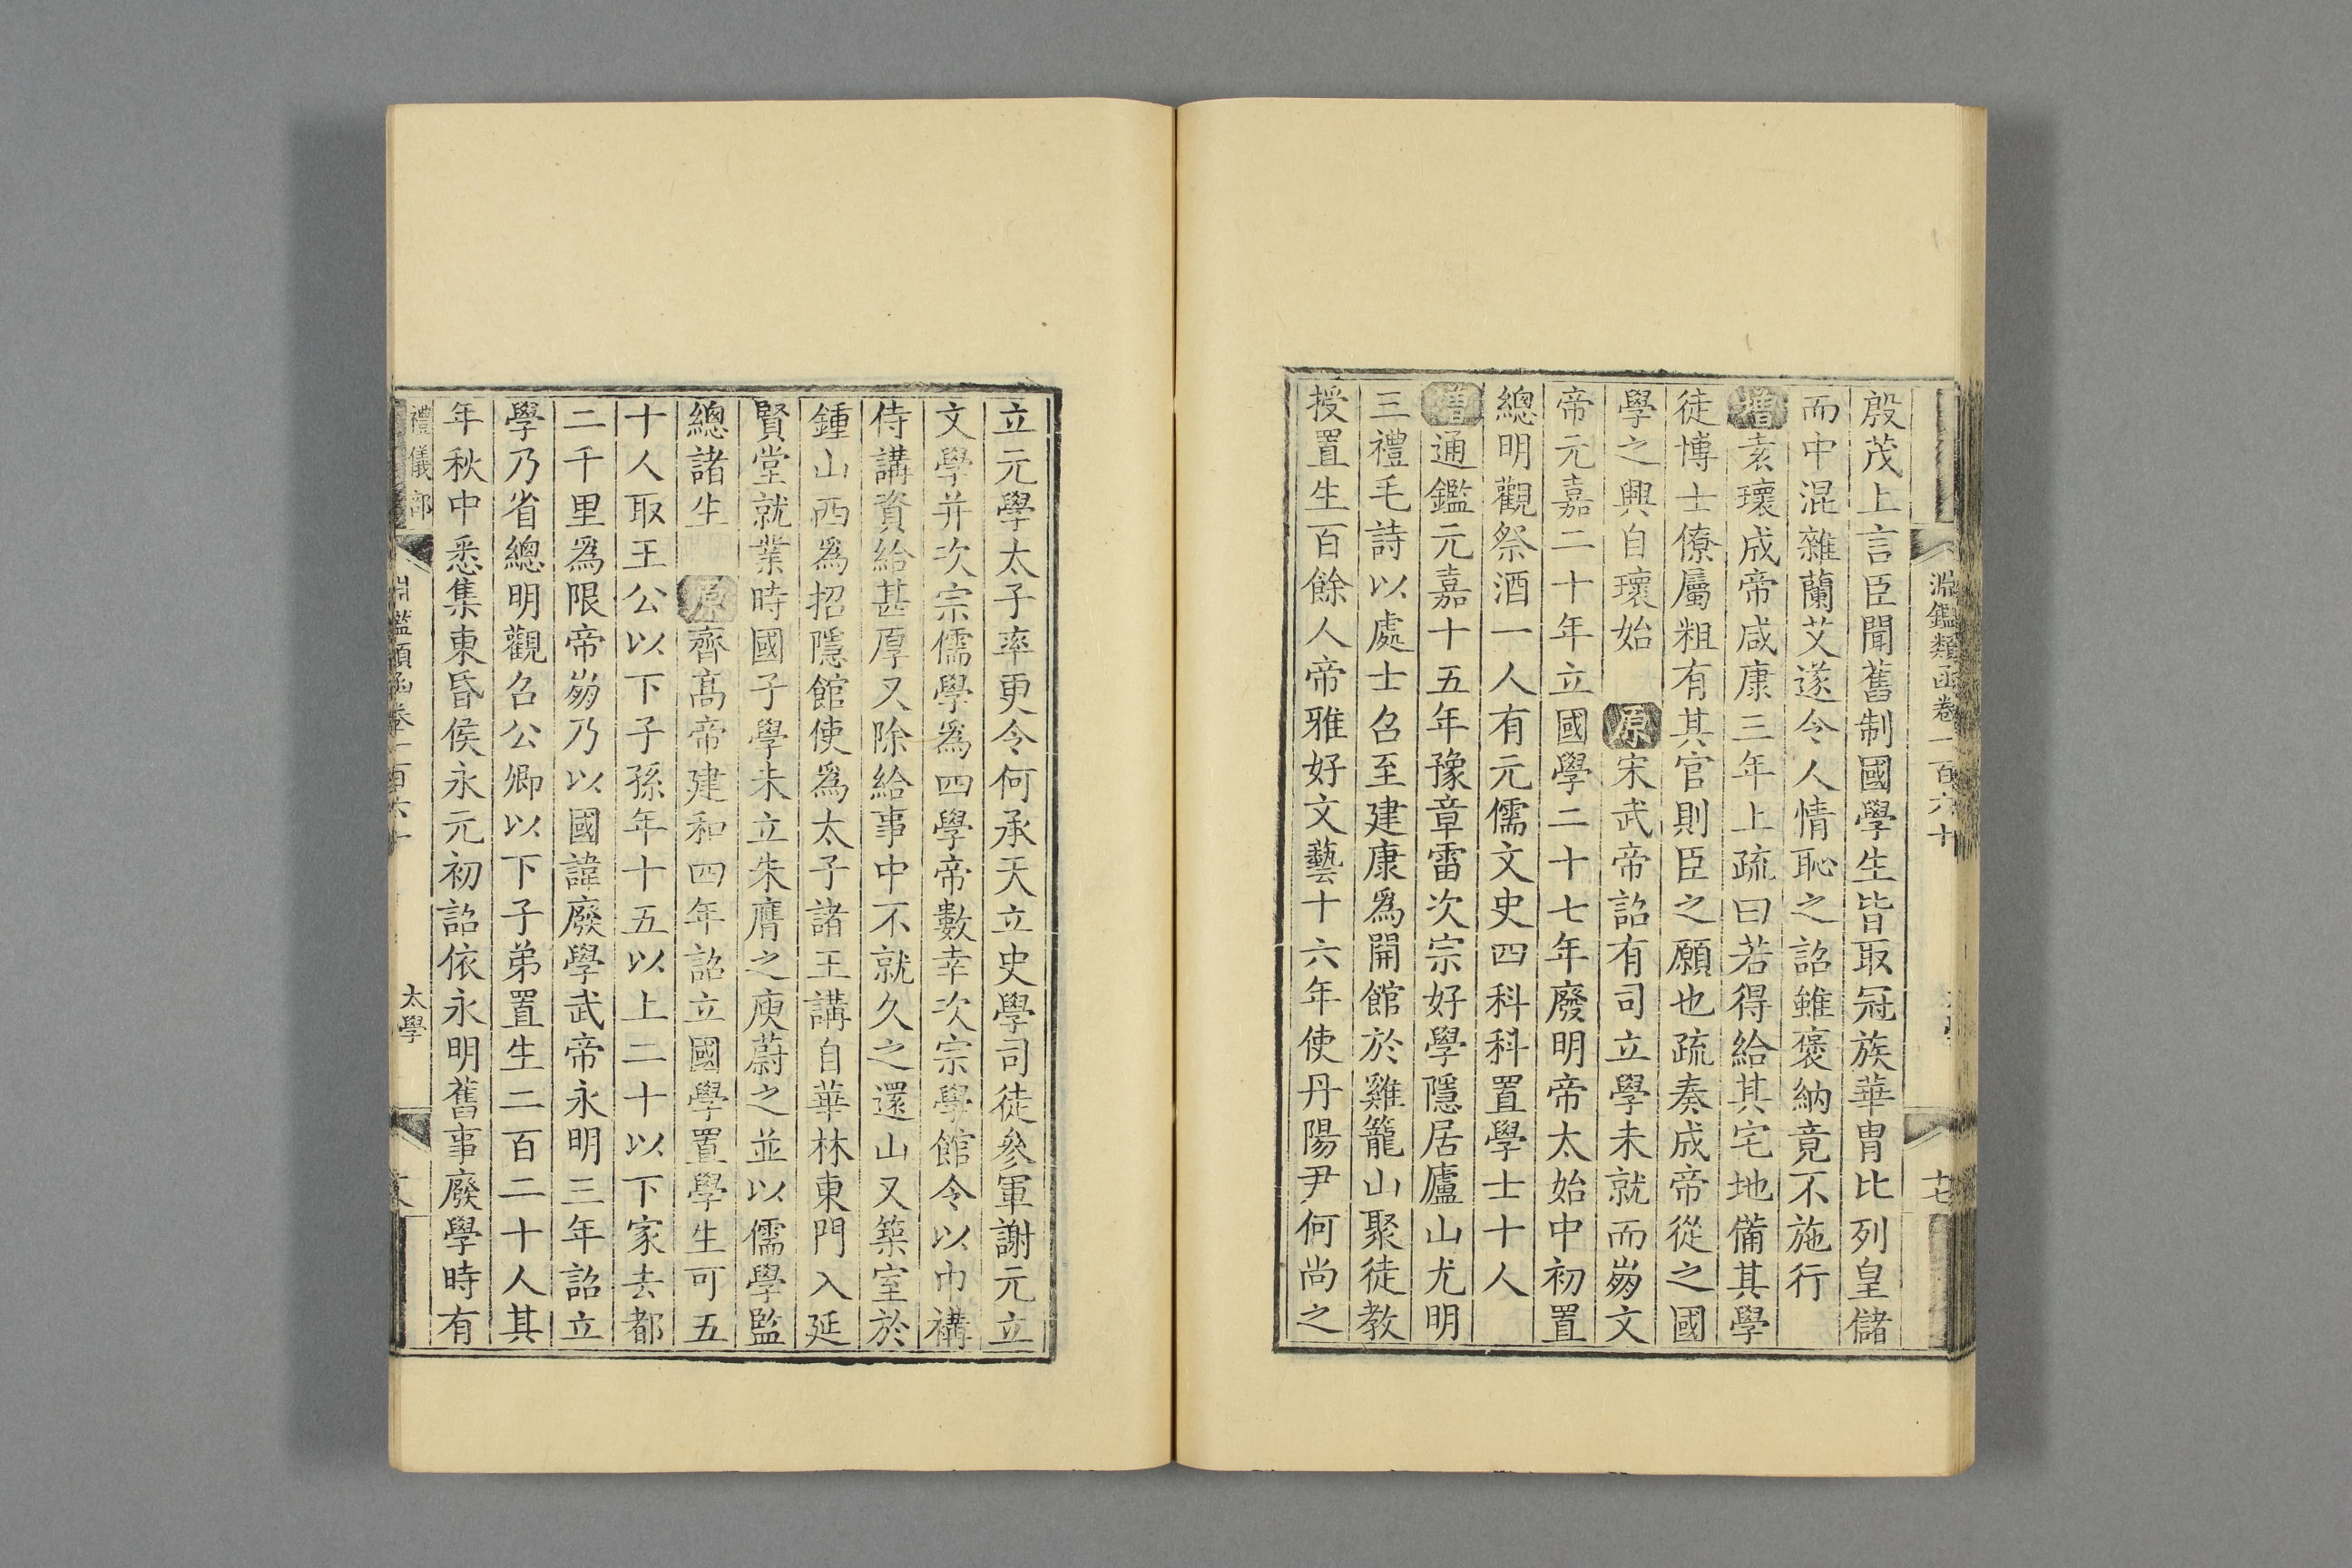 淵鑑類函卷一百六十
十七
殷茂上言臣聞舊制國學生皆取冠族華冑比列皇儲
而中混雜蘭艾遂令人情恥之詔雖褒納竟不施行
增袁瓌成帝咸康三年上疏曰若得給其宅地備其學
徒博士僚屬粗有其官則臣之願也疏奏成帝從之國
學之興自瓌始 原宋武帝詔有司立學未就而崩文
帝元嘉二十年立國學二十七年廢明帝太始中初置
總明觀祭酒一人有元儒文史四科科置學士十人
增通鑑元嘉十五年豫章雷次宗好學隱居廬山尤明
三禮毛詩以處士名至建康爲開館於雞籠山聚徒教
授置生百餘人帝雅好文藝十六年使丹陽尹何尚之
立元學太子率更令何承天立史學司徒參軍謝元立
文學并次宗儒學爲四學帝數幸次宗學館令以巾褠
侍講資給甚厚又除給事中不就久之還山又築室於
鍾山西爲招隱館使爲太子諸王講自華林東門入延
賢堂就業時國子學未立朱膺之庾蔚之並以儒學監
總諸生 原齊高帝建和四年詔立國學置學生可五
十人取王公以下子孫年十五以上二十以下家去都
二千里爲限帝崩乃以國諱廢學武帝永明三年詔立
學乃省總明觀召公卿以下子弟置生二百二十人其
年秋中悉集東昏侯永元初詔依永明舊事廢學時有
禮儀部
淵鑑類函卷一百六十
太學